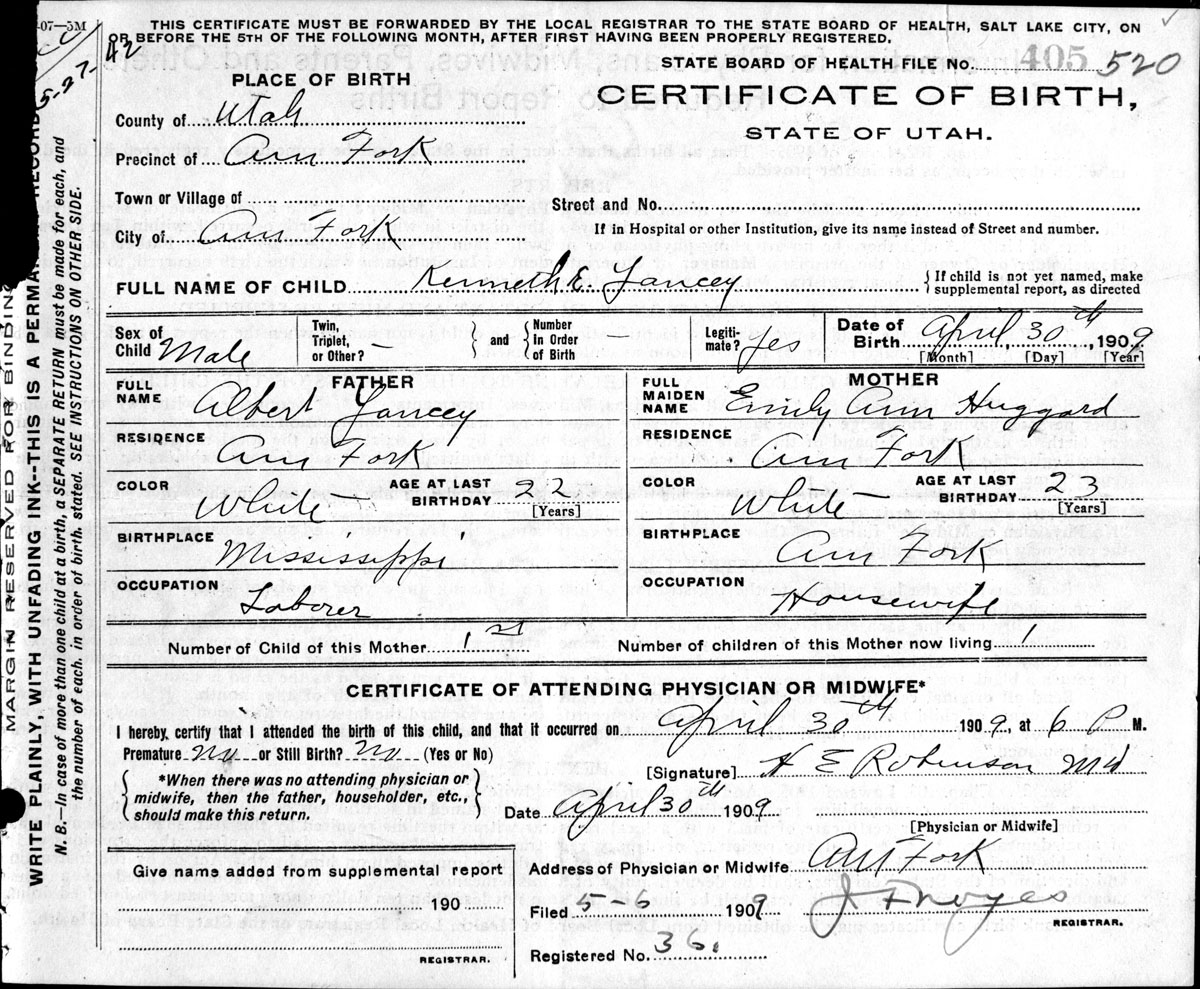 -07-5M
THIS CERTIFICATE MUST BE FORWARDED BY THE LOCAL REGISTRAR TO THE STATE BOARD OF HEALTH, SALT LAKE CITY, ON
OR BEFORE THE 5TH OF THE FOLLOWING MONTH, AFTER FIRST HAVING BEEN PROPERLY REGISTERED.
5-27-42
STATE BOARD OF HEALTH FILE No. 405 520
PLACE OF BIRTH
CERTIFICATE OF BIRTH,
STATE OF UTAH.
County of Utah
Precinct of Am Fork
Town or Village of
Street and No.
City of Am Fork
If in Hospital or other Institution, give its name instead of Street and number.
FULL NAME OF CHILD Kenneth E. Yancey { If child is not yet named, make
supplemental report, as directed
Sex of Child Male
Twin, Triplet, or Other? —
and { Number In Order of Birth —
Legiti-mate? Yes
Date of Birth April, 30th, 1909
[Month] [Day] [Year]
FATHER
FULL NAME Albert Yancey
RESIDENCE Am Fork
COLOR White AGE AT LAST BIRTHDAY 22 [Years]
BIRTHPLACE Mississippi
OCCUPATION Laborer
MOTHER
FULL MAIDEN NAME Emily Ann Huggard
RESIDENCE Am Fork
COLOR White — AGE AT LAST BIRTHDAY 23 [Years]
BIRTHPLACE Am Fork
OCCUPATION Housewife
Number of Child of this Mother 1st Number of children of this Mother now living 1
CERTIFICATE OF ATTENDING PHYSICIAN OR MIDWIFE*
I hereby certify that I attended the birth of this child, and that it occurred on April 30th 1909, at 6 P M.
Premature No or Still Birth? No (Yes or No)
{ *When there was no attending physician or
midwife, then the father, householder, etc.,
should make this return. }
[Signature] H E Robinson Md
Date April 30th 1909
[Physician or Midwife]
Give name added from supplemental report
190
REGISTRAR.
Address of Physician or Midwife Am Fork
Filed 5-6 1909 J F Noyes
REGISTRAR.
Registered No. 36.
MARGIN RESERVED FOR BINDING
WRITE PLAINLY, WITH UNFADING INK--THIS IS A PERMANENT RECORD
N. B.—In case of more than one child at a birth, a SEPARATE RETURN must be made for each, and
the number of each, in order of birth, stated. SEE INSTRUCTIONS ON OTHER SIDE.